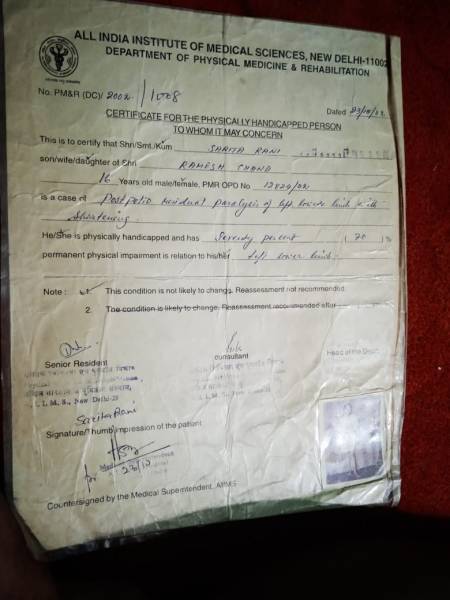 ALL INDIA INSTITUTE OF MEDICAL SCIENCES, NEW DELHI-11002
DEPARTMENT OF PHYSICAL MEDICINE & REHABILITATION
No. PM&R (DC)/ 2002 / 1008
Dated 23/10/02
CERTIFICATE FOR THE PHYSICALLY HANDICAPPED PERSON
TO WHOM IT MAY CONCERN
This is to certify that Shri/Smt./Kum SARITA RANI
son/wife/daughter of Shri RAMESH CHAND
16 Years old male/female, PMR OPD No 12824/02
is a case of Postpolio residual paralysis of left lower limb with
shortening
He/She is physically handicapped and has Seventy percent ( 70 )%
permanent physical impairment is relation to his/her left lower limb.
Note : 1. This condition is not likely to change. Reassessment not recommended.
2. The condition is likely to change. Reassessment recommended after
Senior Resident consultant Head of the Deptt.
New Delhi-29
Sarita Rani
Signature/Thumb impression of the patient
for 23/10
Countersigned by the Medical Superintendent, AIIMS